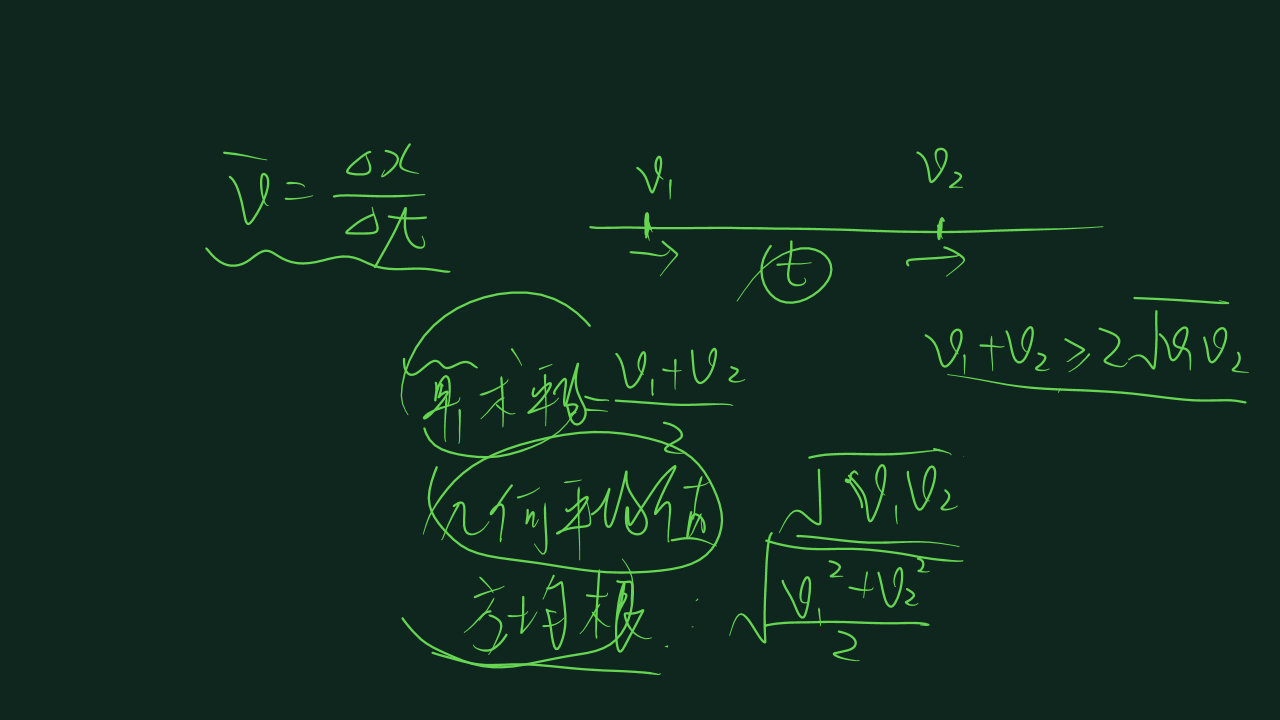 v̅ = Δx/Δt
v₁ v₂
t
v₁+v₂ ≥ 2√(v₁v₂)
算术平均 = (v₁+v₂)/2
几何平均值 √(v₁v₂)
方均根: √((v₁²+v₂²)/2)